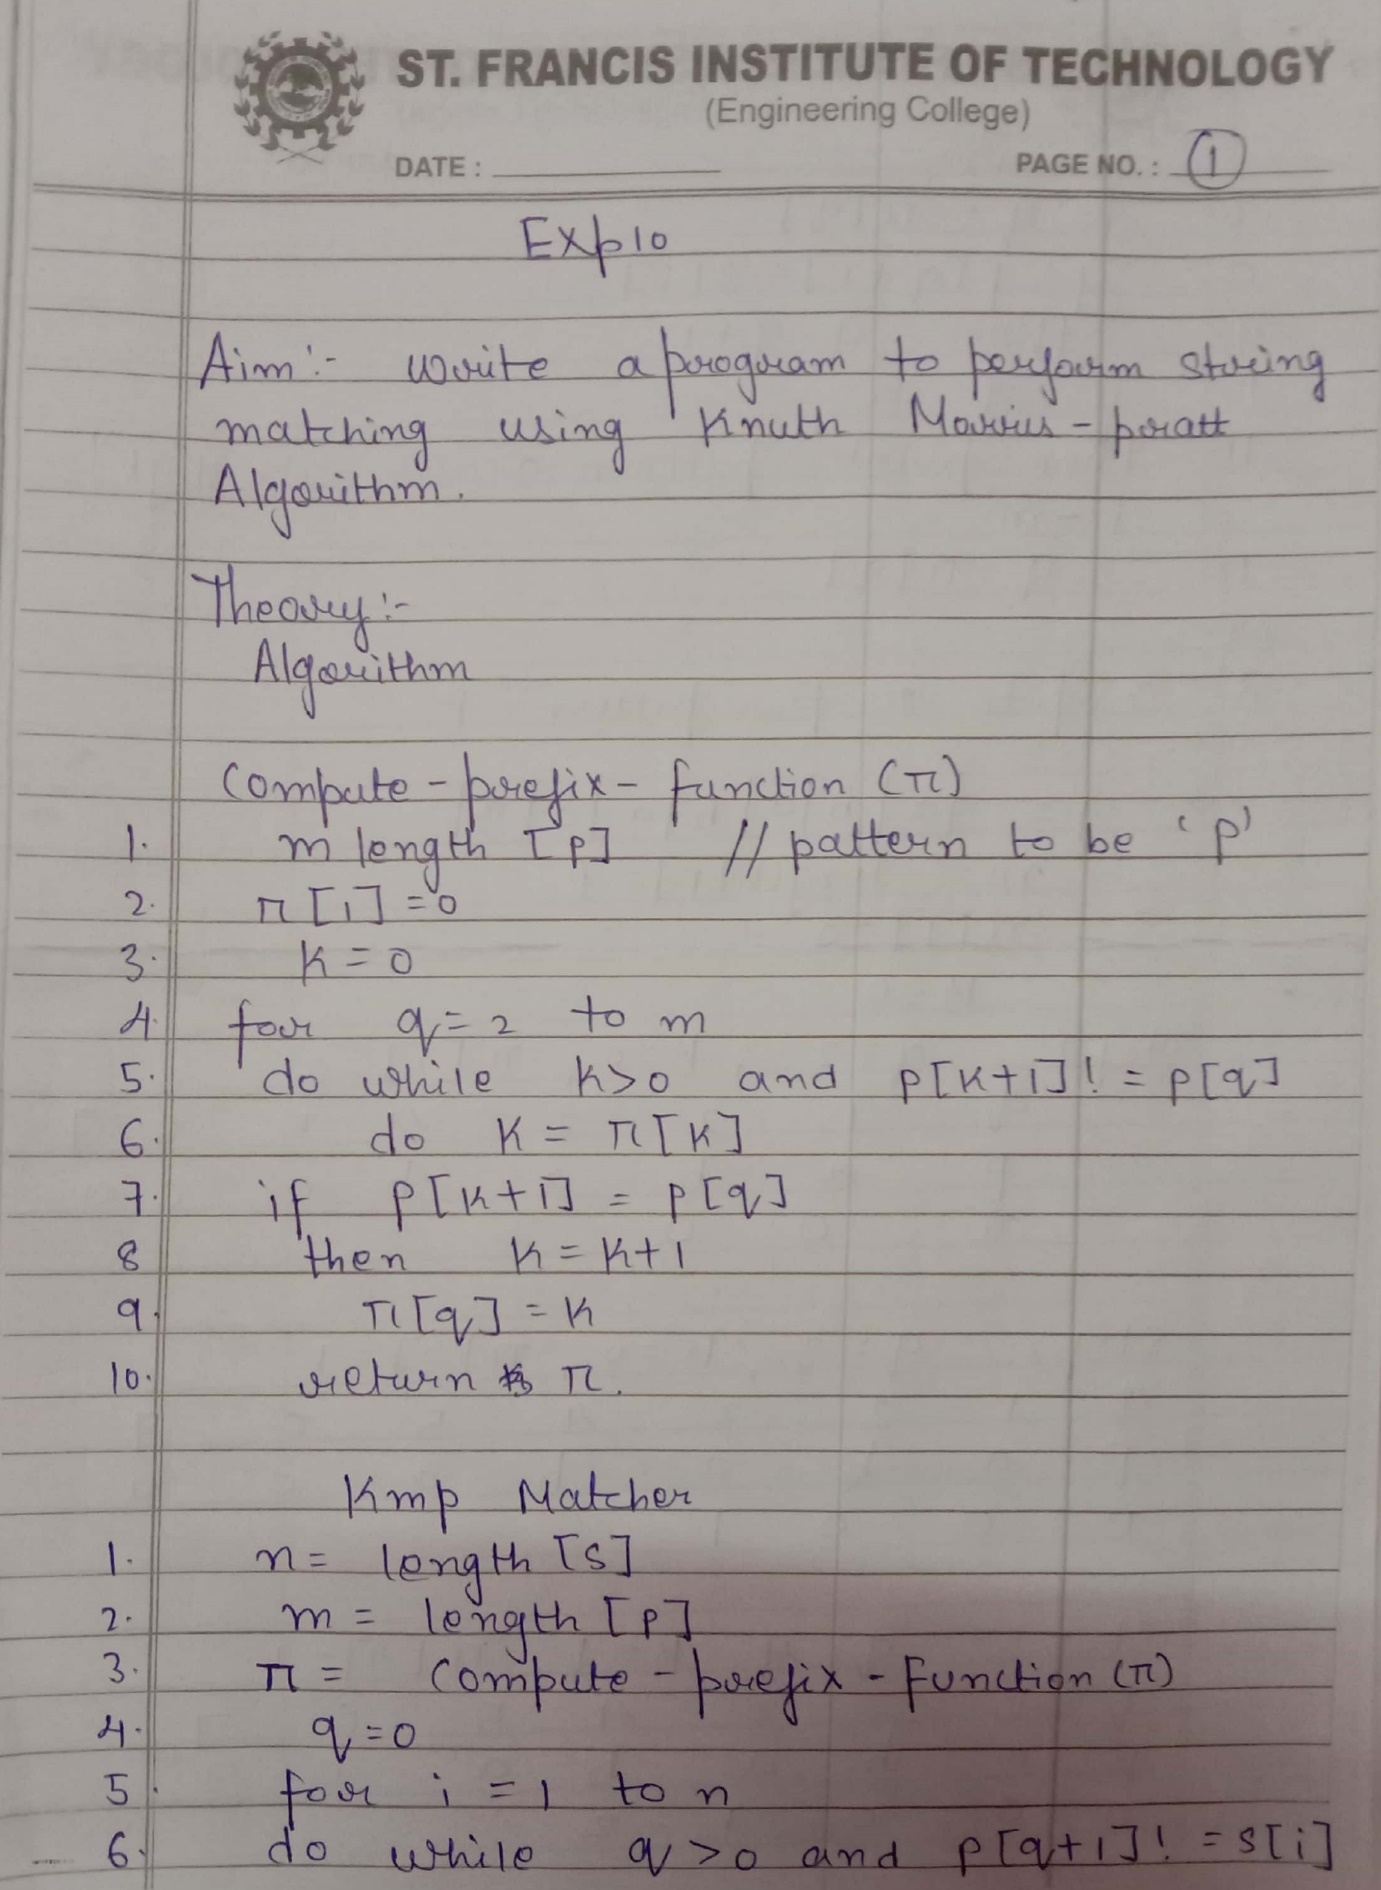 ST. FRANCIS INSTITUTE OF TECHNOLOGY
(Engineering College)
DATE : PAGE NO. : 1
Exp10
Aim :- write a program to perform string
matching using Knuth Morris - pratt
Algorithm.
Theory :-
Algorithm
Compute - prefix - function (π)
1. m length [p] // pattern to be 'p'
2. π [1] = 0
3. K = 0
4. for q = 2 to m
5. do while k>0 and p[k+1]! = p[q]
6. do K = π[K]
7. if p[k+1] = p[q]
8 then k = k+1
9. π[q] = k
10. return π.
Kmp Matcher
1. n = length [s]
2. m = length [p]
3. π = Compute - prefix - Function (π)
4. q = 0
5. for i = 1 to n
6. do while q > 0 and p[q+1]! = s[i]